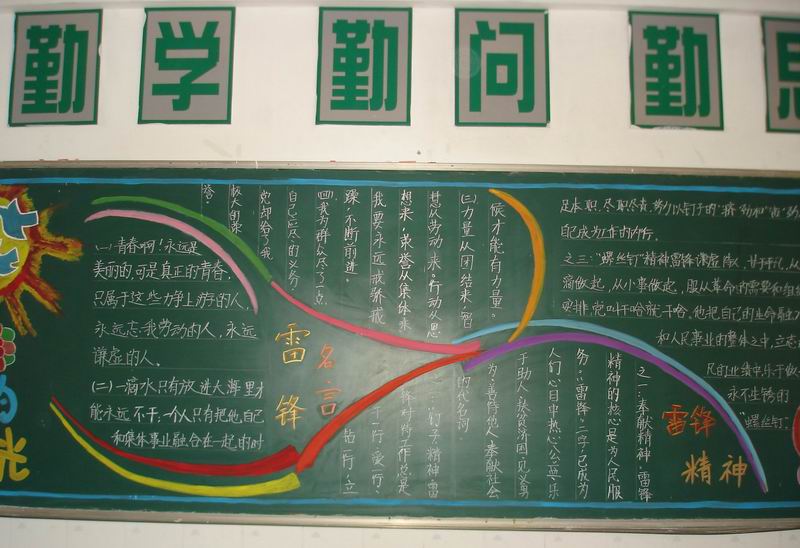 勤学 勤问 勤思
(一)青春啊!永远是
美丽的,可是真正的青春,
只属于这些力争上游的人,
永远忘我劳动的人,永远
谦虚的人。
(二)一滴水只有放进大海里才
能永远不干,一个人只有把他自己
和集体事业融合在一起的时
候才能有力量。
(三)力量从团结来,智
慧从劳动来,行动从思
想来,荣誉从集体来
我要永远戒骄戒
躁,不断前进。
(四)我为群众尽了一点
自己应尽的义务,
党却给了我
极大的荣
誉。
雷锋
名言
雷锋
精神
之一:奉献精神,雷锋
精神的核心是为人民服
务。“雷锋”二字,已成为
人们心目中热心公益、乐
于助人、扶贫济困、见义勇
为、善待他人、奉献社会
的代名词
钉子精神,雷
锋对待工作总是
干一行、爱一行、
钻一行,立
足本职,尽职尽责,努力以钉子的“挤”劲和“钻”劲
自己成为工作的内行。
之三:“螺丝钉”精神,雷锋谦虚
滴做起,从小事做起,服从革命的需要和组织
安排,党叫干啥就干啥,他把自己的生命融入
和人民事业的整体之中,立志
凡的业绩中,乐于做
永不生锈的
“螺丝钉”
的
光